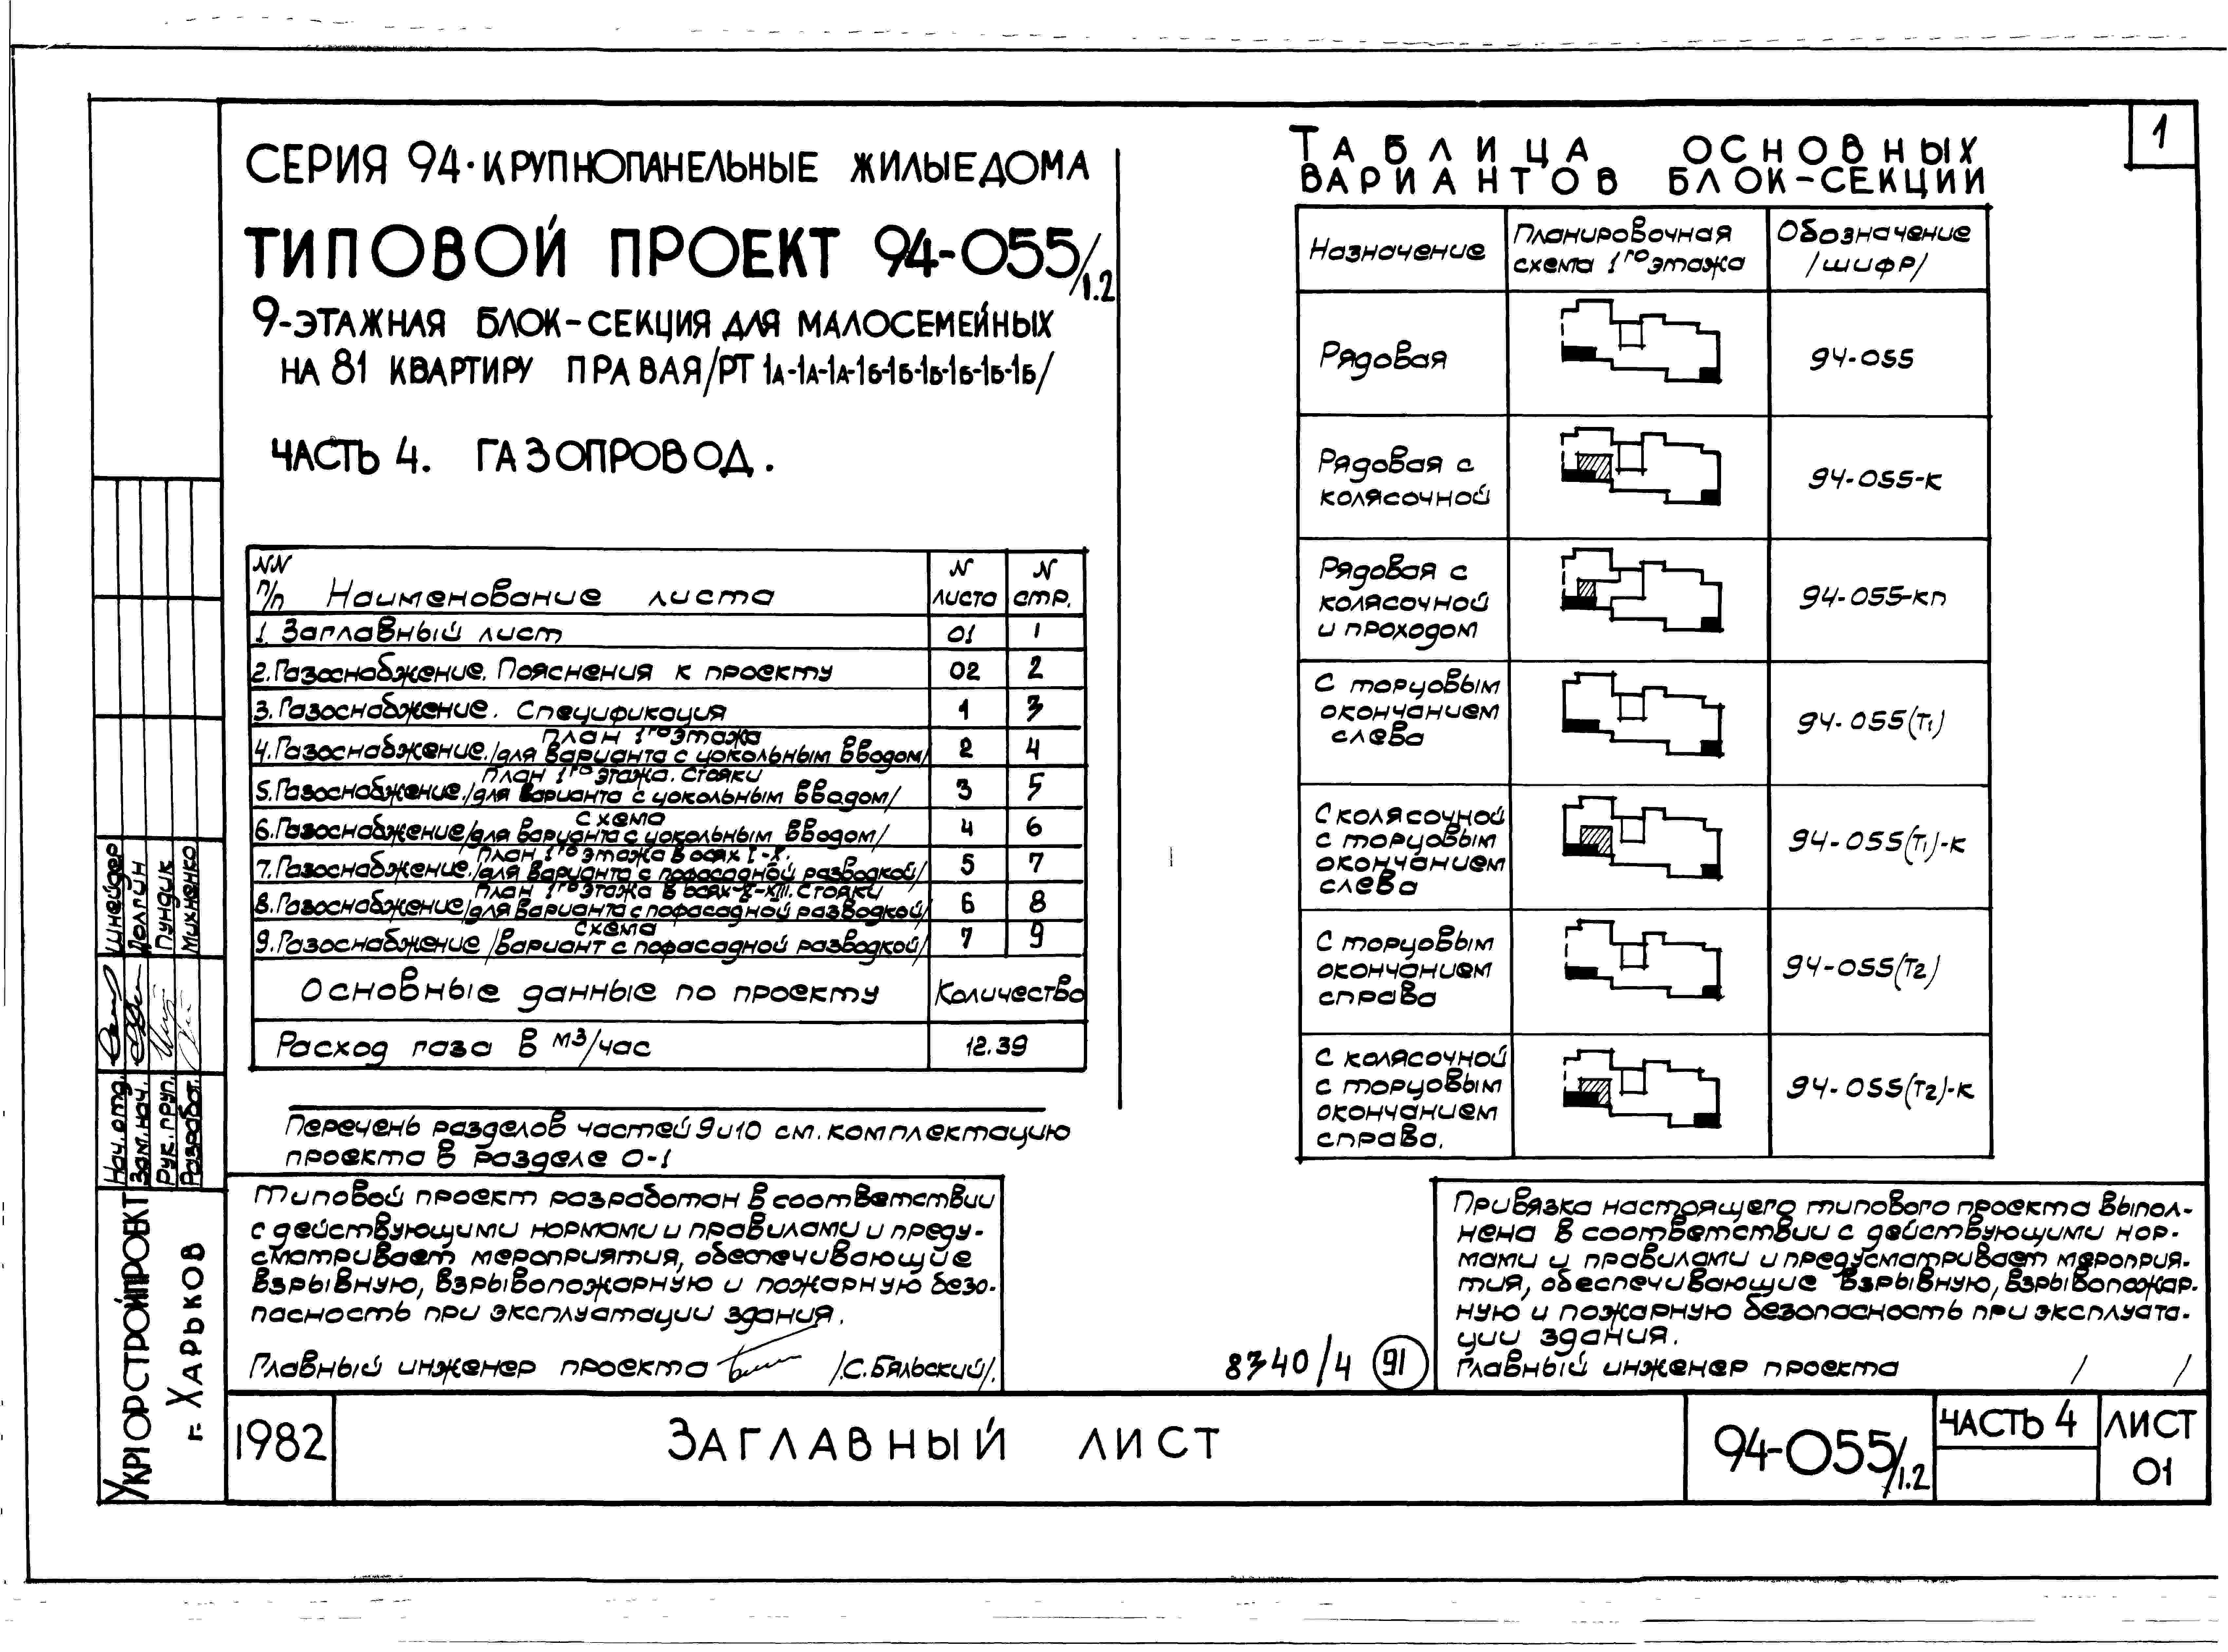 СЕРИЯ 94·КРУПНОПАНЕЛЬНЫЕ ЖИЛЫЕ ДОМА
ТИПОВОЙ ПРОЕКТ 94-055/1.2
9-ЭТАЖНАЯ БЛОК-СЕКЦИЯ ДЛЯ МАЛОСЕМЕЙНЫХ
НА 81 КВАРТИРУ ПРАВАЯ/РТ 1А-1А-1А-1Б-1Б-1Б-1Б-1Б-1Б/
ЧАСТЬ 4. ГАЗОПРОВОД.
NN п/п Наименование листа N листа N стр.
1. Заглавный лист 01 1
2. Газоснабжение. Пояснения к проекту 02 2
3. Газоснабжение. Спецификация 1 3
План 1го этажа
4. Газоснабжение./для варианта с цокольным вводом/ 2 4
План 1го этажа. Стояки
5. Газоснабжение./для варианта с цокольным вводом/ 3 5
Схема
6. Газоснабжение/для варианта с цокольным вводом/ 4 6
План 1го этажа в осях I-X.
7. Газоснабжение./для варианта с пофасадной разводкой/ 5 7
План 1го этажа в осях X-XIII. Стояки
8. Газоснабжение/для варианта с пофасадной разводкой/ 6 8
Схема
9. Газоснабжение /вариант с пофасадной разводкой/ 7 9
Основные данные по проекту Количество
Расход газа в м3/час 12.39
Перечень разделов частей 9 и 10 см. комплектацию
проекта в разделе 0-1
Типовой проект разработан в соответствии
с действующими нормами и правилами и преду-
сматривает мероприятия, обеспечивающие
взрывную, взрывопожарную и пожарную безо-
пасность при эксплуатации здания.
Главный инженер проекта /С.Бяльский/.
ТАБЛИЦА ОСНОВНЫХ
ВАРИАНТОВ БЛОК-СЕКЦИИ
1
Назначение Планировочная схема 1го этажа Обозначение /шифр/
Рядовая 94-055
Рядовая с
колясочной 94-055-к
Рядовая с
колясочной
и проходом 94-055-кп
С торцовым
окончанием
слева 94-055(Т1)
С колясочной
с торцовым
окончанием
слева 94-055(Т1)-к
С торцовым
окончанием
справа 94-055(Т2)
С колясочной
с торцовым
окончанием
справа. 94-055(Т2)-к
Привязка настоящего типового проекта выпол-
нена в соответствии с действующими нор-
мами и правилами и предусматривает мероприя-
тия, обеспечивающие взрывную, взрывопожар-
ную и пожарную безопасность при эксплуата-
ции здания.
Главный инженер проекта / /
8340/4 91
Нач. отд. Шнейдер
Зам. нач. Долгин
Рук. груп. Пундик
Разработ. Михненко
УКРГОРСТРОЙПРОЕКТ
г. ХАРЬКОВ
1982
ЗАГЛАВНЫЙ ЛИСТ
94-055/1.2
ЧАСТЬ 4
ЛИСТ
01